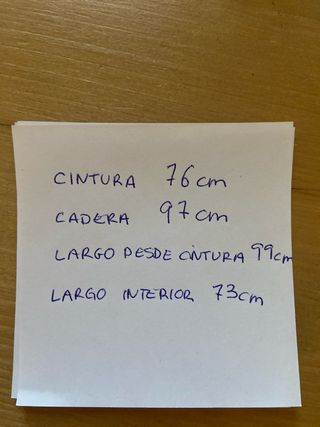 CINTURA 76cm
CADERA 97cm
LARGO DESDE CINTURA 99cm
LARGO INTERIOR 73cm